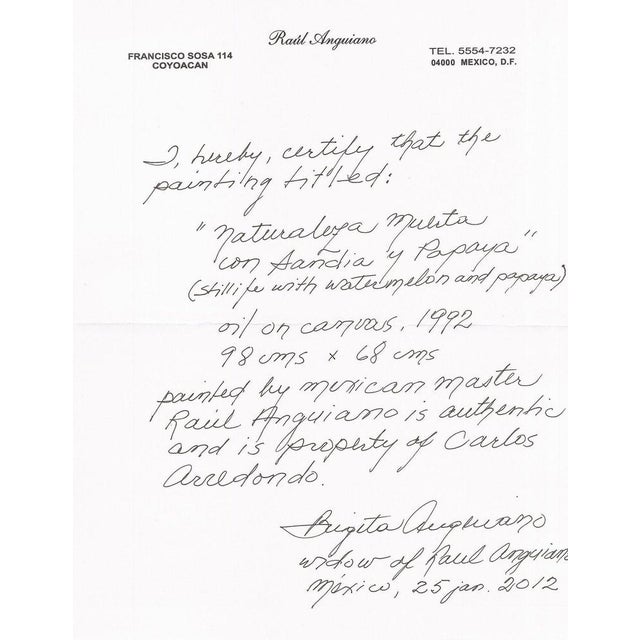 Raúl Anguiano
FRANCISCO SOSA 114
COYOACAN
TEL. 5554-7232
04000 MEXICO, D.F.
I, hereby, certify that the
painting titled:
"Naturaleza Muerta
con Sandia y Papaya"
(still life with watermelon and papaya)
oil on canvas, 1992
98 cms x 68 cms
painted by mexican master
Raúl Anguiano is authentic
and is property of Carlos
Arredondo.
Brigita Anguiano
widow of Raúl Anguiano
México, 25 jan. 2012